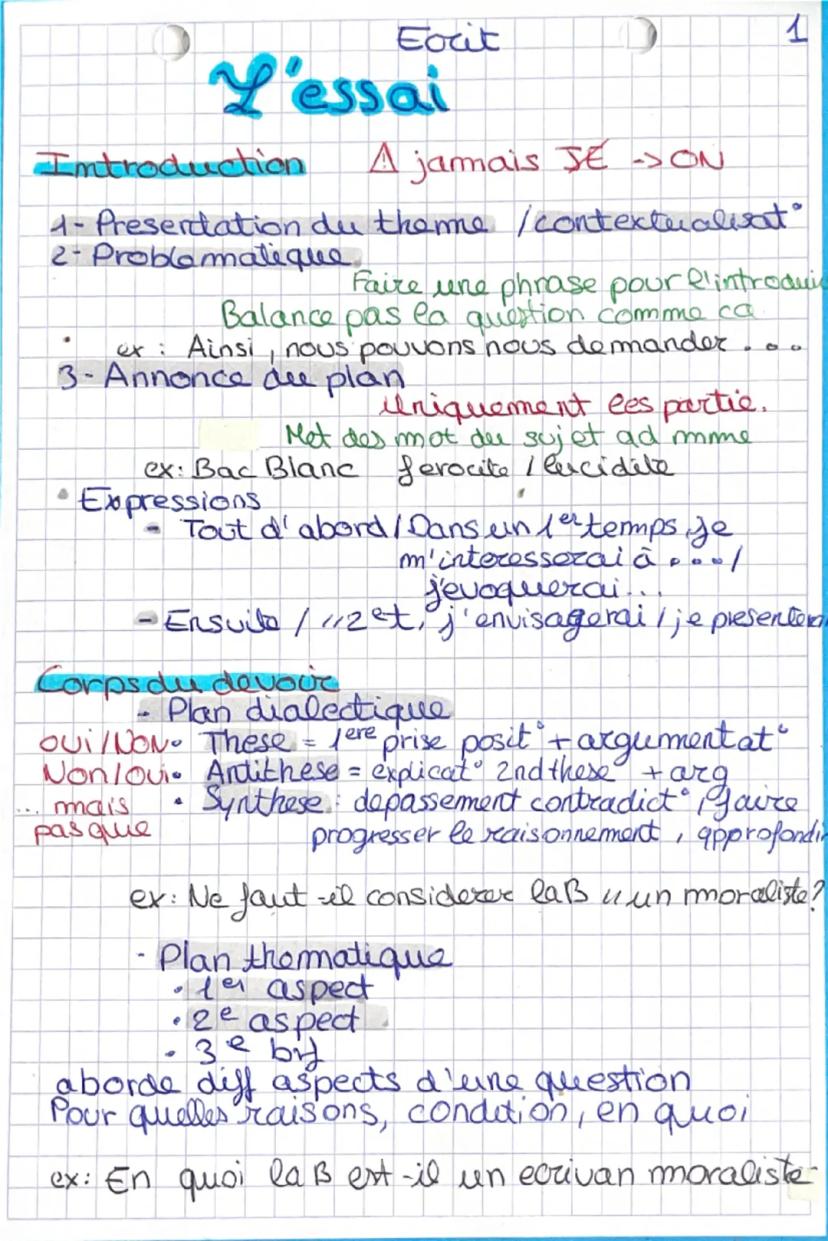 Ecrit 1
L'essai
Introduction ⚠ jamais JE -> ON
1- Presentation du theme / contextualisat°
2- Problematique
Faire une phrase pour l'introdui
Balance pas la question comme ca
ex : Ainsi, nous pouvons nous demander ...
3- Annonce du plan
Uniquement les partie.
Met des mot du sujet ad mme
ex: Bac Blanc ferocite / lucidite
• Expressions
- Tout d'abord / Dans un 1er temps, je
m'interesserai à .../
j'evoquerai...
- Ensuite / "2et, j'envisagerai / je presenterai
Corps du devoir
- Plan dialectique
OUI/NON • These = 1ere prise posit° + argumentat°
Non/oui • Antithese = explicat° 2nd these + arg
... mais • Synthese : depassement contradict°, faire
pas que progresser le raisonnement, approfondir
ex: Ne faut-il considerer laB " un moraliste?
- Plan thematique
• 1er aspect
• 2e aspect
• 3e
aborde diff aspects d'une question
Pour quelles raisons, condition, en quoi
ex: En quoi laB est-il un ecrivan moraliste